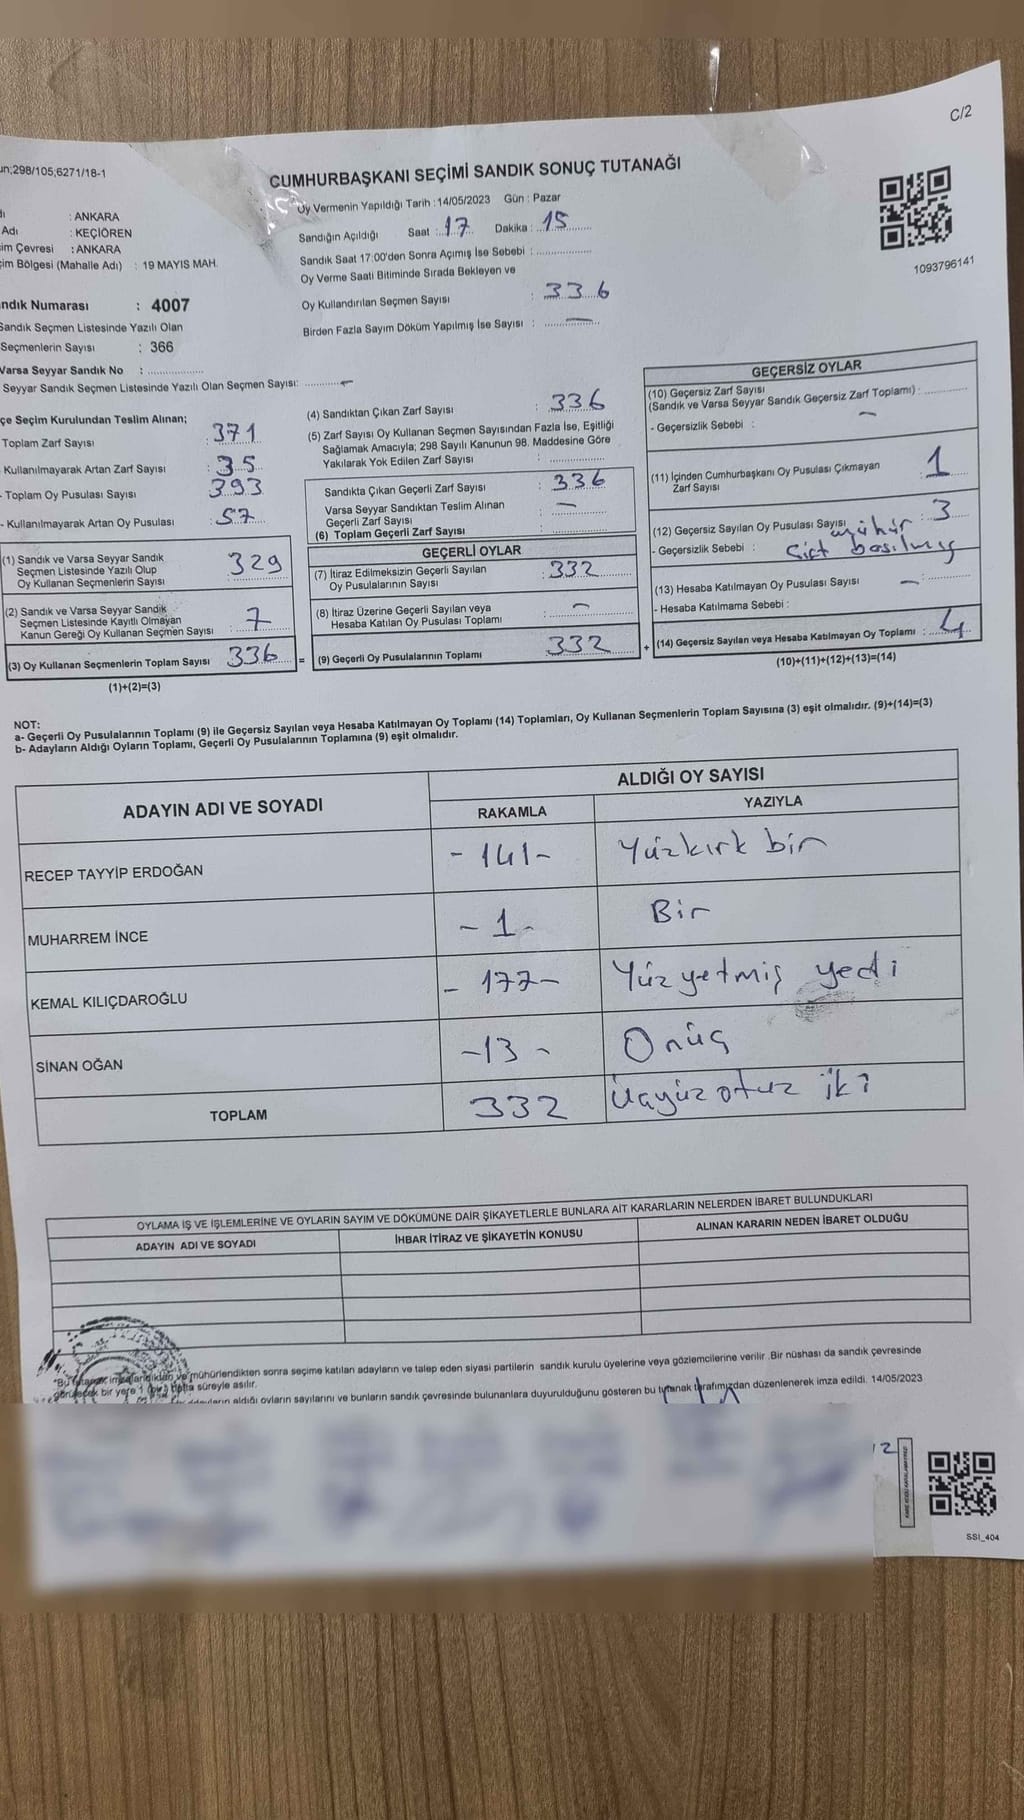 C/2
un;298/105;6271/18-1
CUMHURBAŞKANI SEÇİMİ SANDIK SONUÇ TUTANAĞI
Oy Vermenin Yapıldığı Tarih :14/05/2023 Gün : Pazar
: ANKARA
Adı : KEÇİÖREN
im Çevresi : ANKARA
çim Bölgesi (Mahalle Adı) : 19 MAYIS MAH.
Sandığın Açıldığı Saat : 17 Dakika : 15
Sandık Saat 17:00'den Sonra Açımış İse Sebebi :
Oy Verme Saati Bitiminde Sırada Bekleyen ve
Oy Kullandırılan Seçmen Sayısı : 336
Birden Fazla Sayım Döküm Yapılmış İse Sayısı : —
1093796141
ndık Numarası : 4007
Sandık Seçmen Listesinde Yazılı Olan
Seçmenlerin Sayısı : 366
Varsa Seyyar Sandık No :
Seyyar Sandık Seçmen Listesinde Yazılı Olan Seçmen Sayısı: —
çe Seçim Kurulundan Teslim Alınan;
Toplam Zarf Sayısı : 371
Kullanılmayarak Artan Zarf Sayısı : 35
- Toplam Oy Pusulası Sayısı 393
- Kullanılmayarak Artan Oy Pusulası : 57
(1) Sandık ve Varsa Seyyar Sandık
Seçmen Listesinde Yazılı Olup
Oy Kullanan Seçmenlerin Sayısı 329
(2) Sandık ve Varsa Seyyar Sandık
Seçmen Listesinde Kayıtlı Olmayan
Kanun Gereği Oy Kullanan Seçmen Sayısı : 7
(3) Oy Kullanan Seçmenlerin Toplam Sayısı 336
(1)+(2)=(3)
(4) Sandıktan Çıkan Zarf Sayısı : 336
(5) Zarf Sayısı Oy Kullanan Seçmen Sayısından Fazla İse, Eşitliği
Sağlamak Amacıyla; 298 Sayılı Kanunun 98. Maddesine Göre
Yakılarak Yok Edilen Zarf Sayısı :
Sandıkta Çıkan Geçerli Zarf Sayısı : 336
Varsa Seyyar Sandıktan Teslim Alınan
Geçerli Zarf Sayısı : —
(6) Toplam Geçerli Zarf Sayısı :
GEÇERLİ OYLAR
(7) İtiraz Edilmeksizin Geçerli Sayılan
Oy Pusulalarının Sayısı : 332
(8) İtiraz Üzerine Geçerli Sayılan veya
Hesaba Katılan Oy Pusulası Toplamı : —
= (9) Geçerli Oy Pusulalarının Toplamı 332
GEÇERSİZ OYLAR
(10) Geçersiz Zarf Sayısı
(Sandık ve Varsa Seyyar Sandık Geçersiz Zarf Toplamı) :
- Geçersizlik Sebebi : —
(11) İçinden Cumhurbaşkanı Oy Pusulası Çıkmayan
Zarf Sayısı : 1
(12) Geçersiz Sayılan Oy Pusulası Sayısı 3
- Geçersizlik Sebebi : mühür
çift basılmış
(13) Hesaba Katılmayan Oy Pusulası Sayısı : —
- Hesaba Katılmama Sebebi :
+ (14) Geçersiz Sayılan veya Hesaba Katılmayan Oy Toplamı : 4
(10)+(11)+(12)+(13)=(14)
NOT:
a- Geçerli Oy Pusulalarının Toplamı (9) ile Geçersiz Sayılan veya Hesaba Katılmayan Oy Toplamı (14) Toplamları, Oy Kullanan Seçmenlerin Toplam Sayısına (3) eşit olmalıdır. (9)+(14)=(3)
b- Adayların Aldığı Oyların Toplamı, Geçerli Oy Pusulalarının Toplamına (9) eşit olmalıdır.
ADAYIN ADI VE SOYADI ALDIĞI OY SAYISI
RAKAMLA YAZIYLA
RECEP TAYYİP ERDOĞAN -141- Yüzkırk bir
MUHARREM İNCE -1- Bir
KEMAL KILIÇDAROĞLU -177- Yüzyetmiş yedi
SİNAN OĞAN -13- Onüç
TOPLAM 332 Üçyüzotuz iki
OYLAMA İŞ VE İŞLEMLERİNE VE OYLARIN SAYIM VE DÖKÜMÜNE DAİR ŞİKAYETLERLE BUNLARA AİT KARARLARIN NELERDEN İBARET BULUNDUKLARI
ADAYIN ADI VE SOYADI İHBAR İTİRAZ VE ŞİKAYETİN KONUSU ALINAN KARARIN NEDEN İBARET OLDUĞU
"Bu tutanak imzalandıktan ve mühürlendikten sonra seçime katılan adayların ve talep eden siyasi partilerin sandık kurulu üyelerine veya gözlemcilerine verilir .Bir nüshası da sandık çevresinde
görülecek bir yere 1 (bir) hafta süreyle asılır.
aldığı oyların sayılarını ve bunların sandık çevresinde bulunanlara duyurulduğunu gösteren bu tutanak tarafımızdan düzenlenerek imza edildi. 14/05/2023
SSI_404